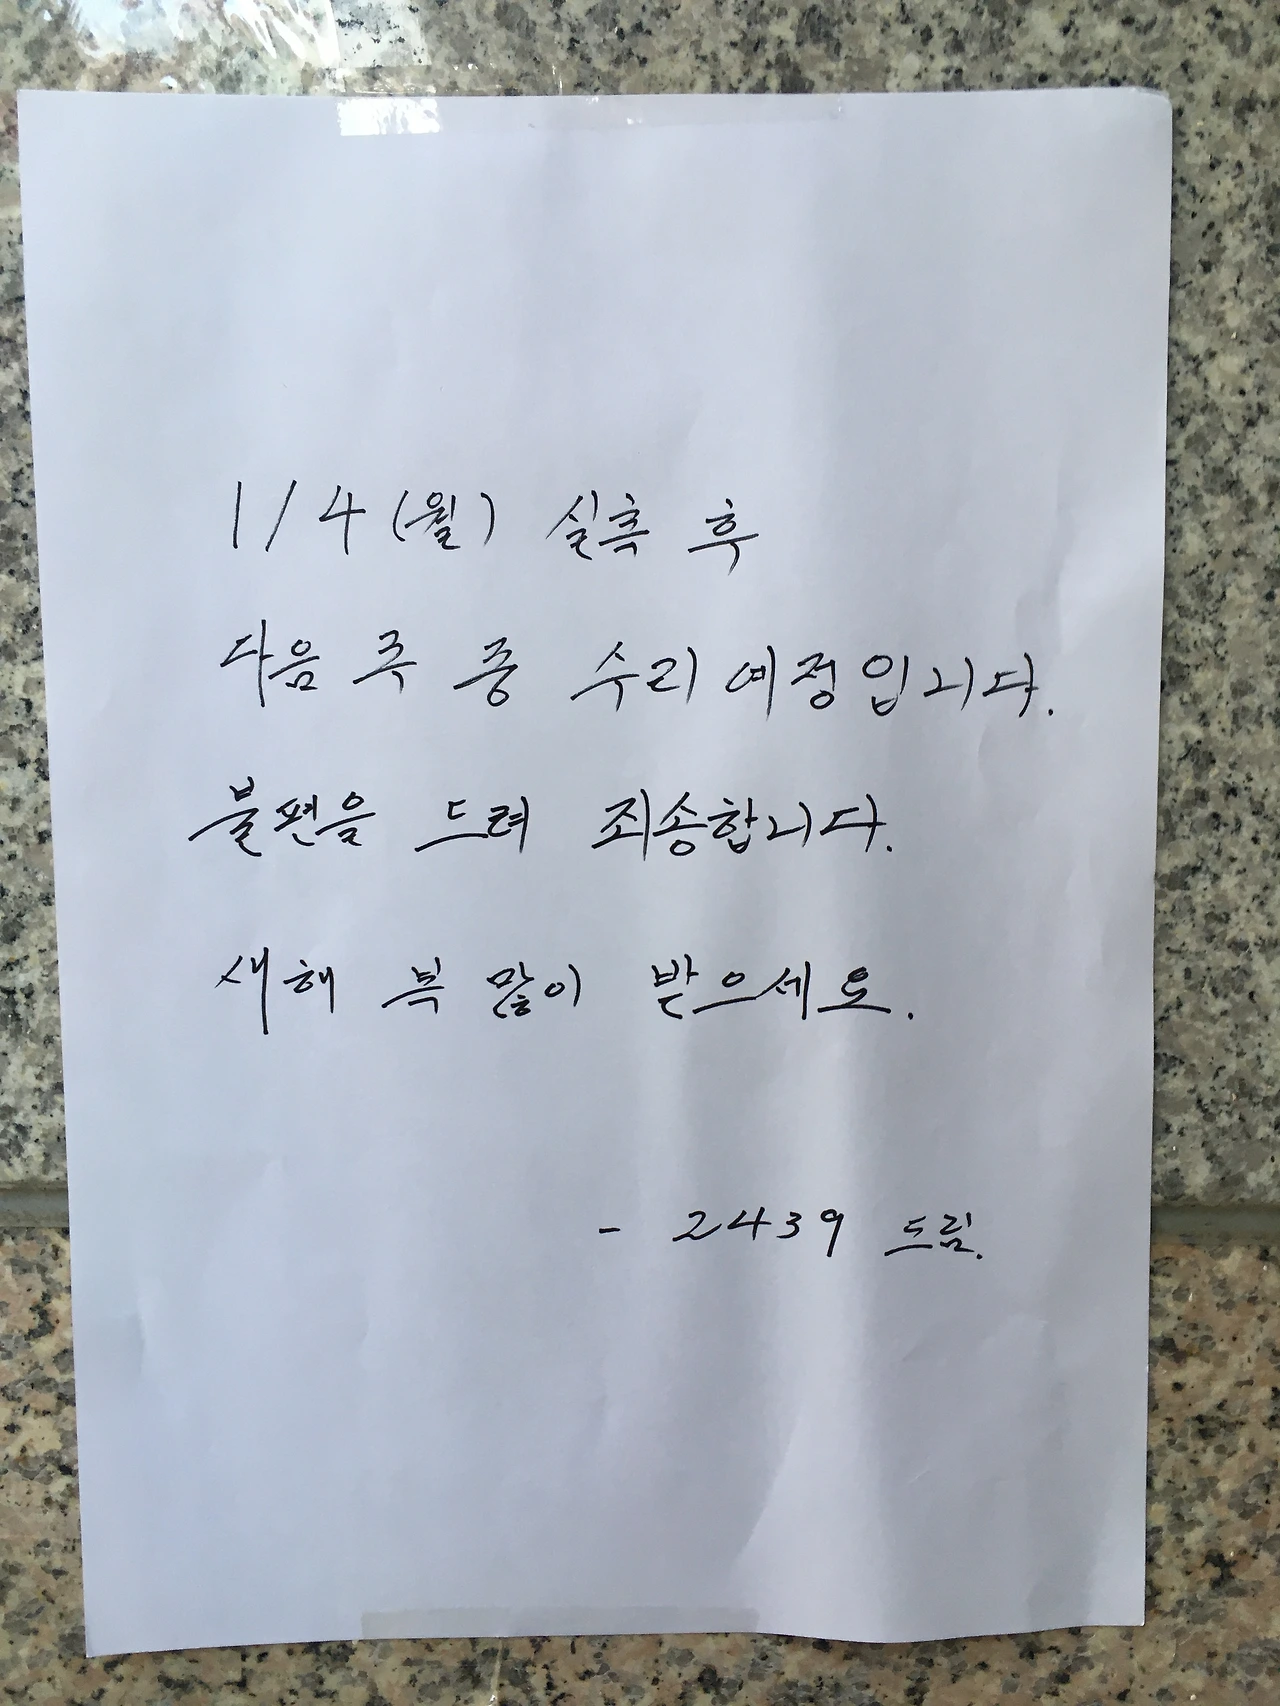 1/4(월) 실측 후
다음 주 중 수리 예정입니다.
불편을 드려 죄송합니다.
새해 복 많이 받으세요.
- 2439 드림.